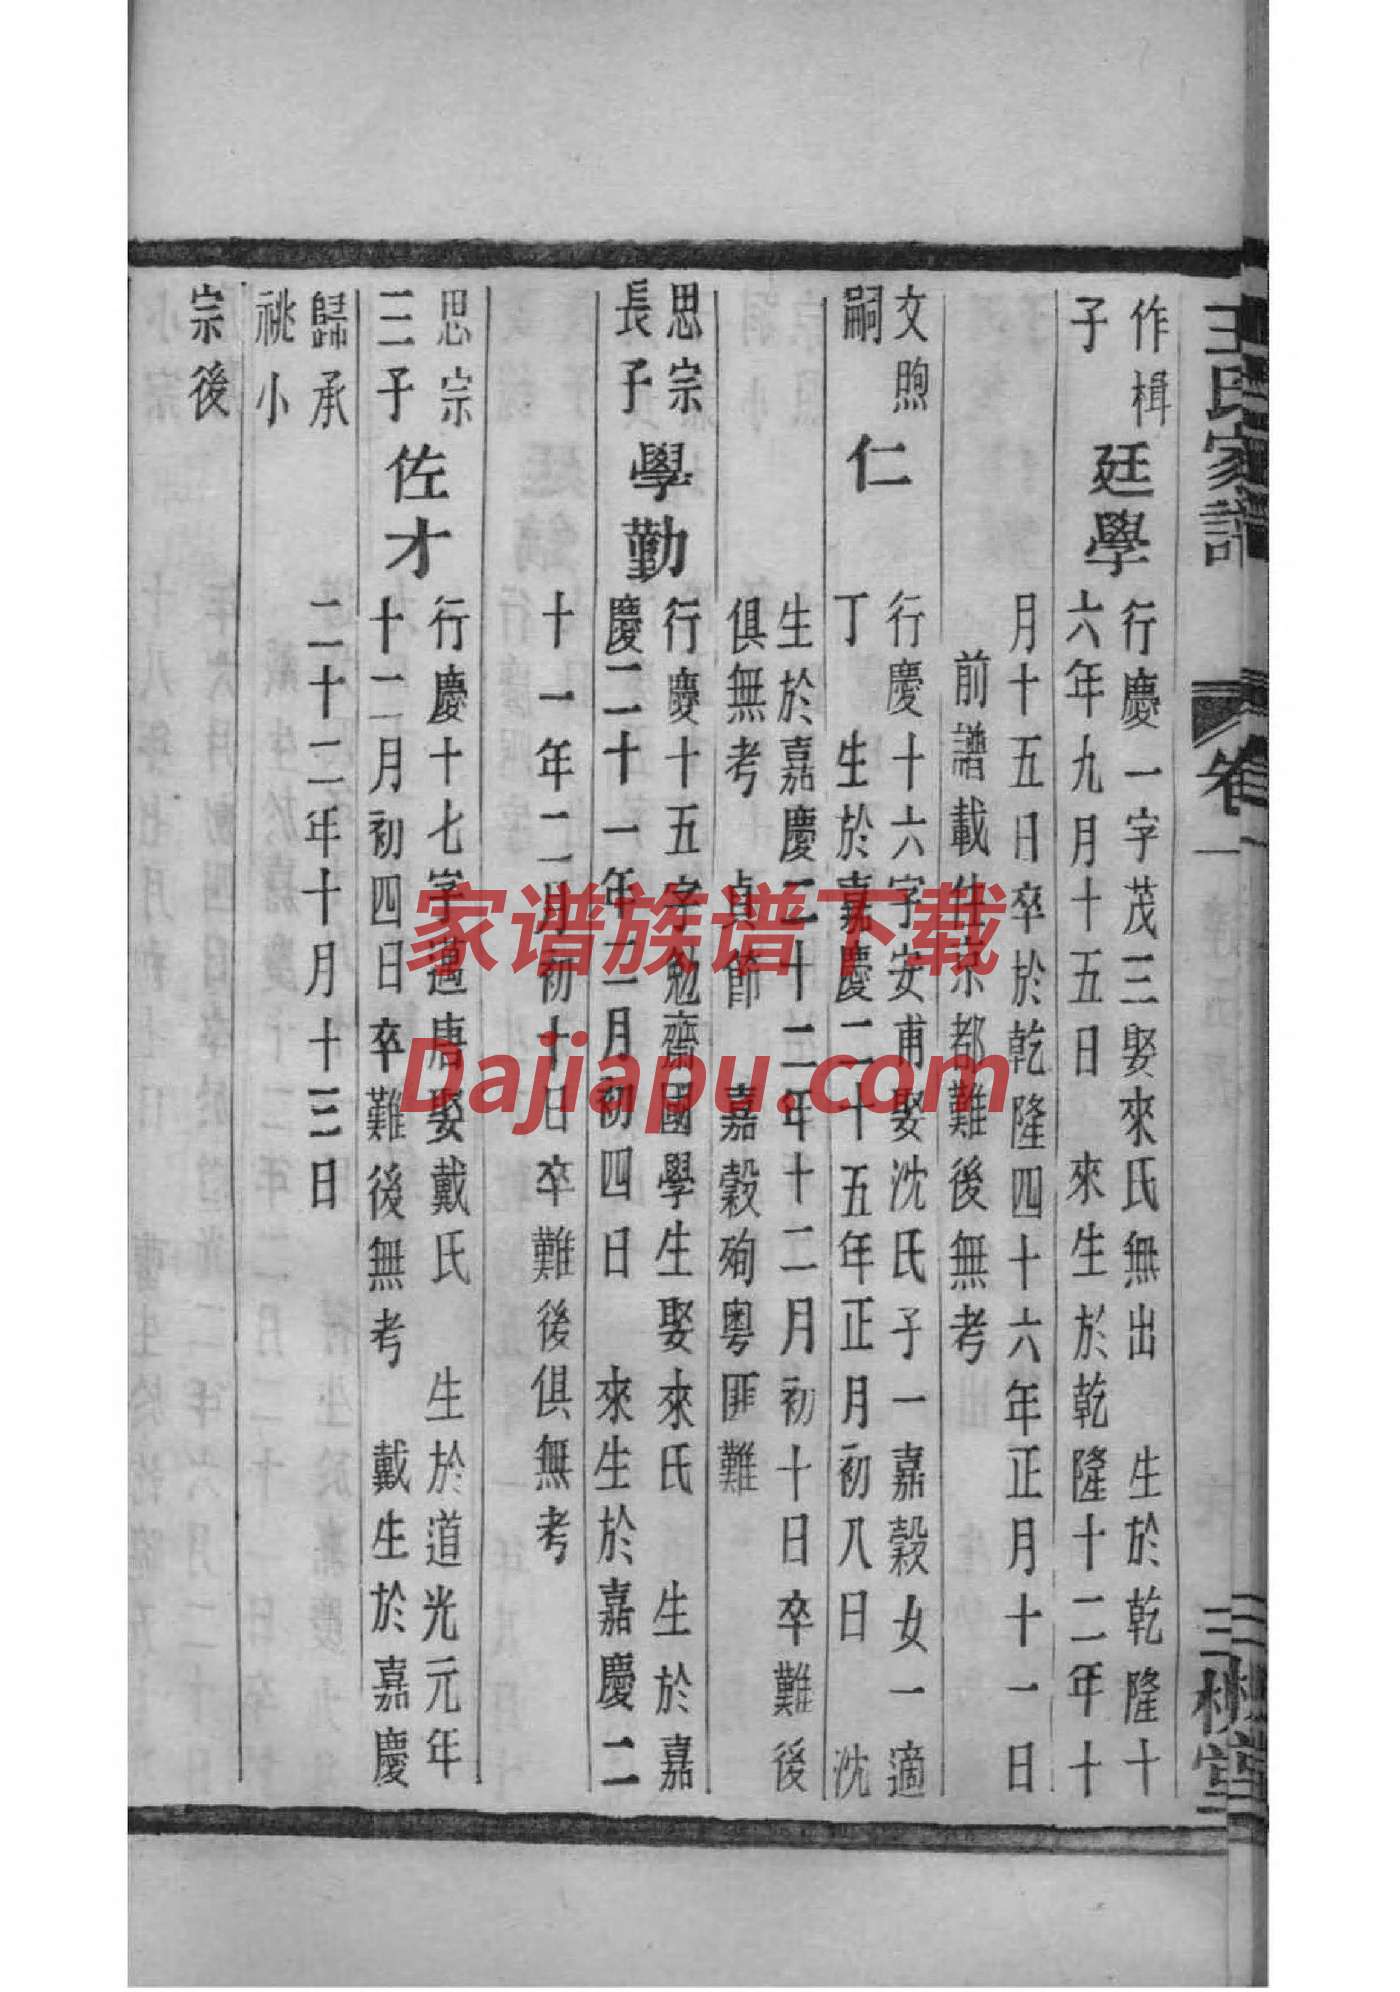 王氏家譜
卷一
三槐堂
作楫
子
廷學
行慶一字茂三娶來氏無出 生於乾隆十
六年九月十五日 來生於乾隆十二年十
月十五日卒於乾隆四十六年正月十一日
前譜載仕京都難後無考
文煦
嗣
仁
行慶十六字安甫娶沈氏子一嘉穀女一適
丁 生於嘉慶二十五年正月初八日 沈
生於嘉慶二十二年十二月初十日卒難後
俱無考 貞節 嘉穀殉粵匪難
思宗
長子
學勤
行慶十五字勉齋國學生娶來氏 生於嘉
慶二十一年二月初四日 來生於嘉慶二
十一年二月初十日卒難後俱無考
思宗
三子
歸承
祧小
宗後
佐才
行慶十七字邁唐娶戴氏 生於道光元年
十二月初四日卒難後無考 戴生於嘉慶
二十二年十月十三日
家谱族谱下载
Dajiapu.com